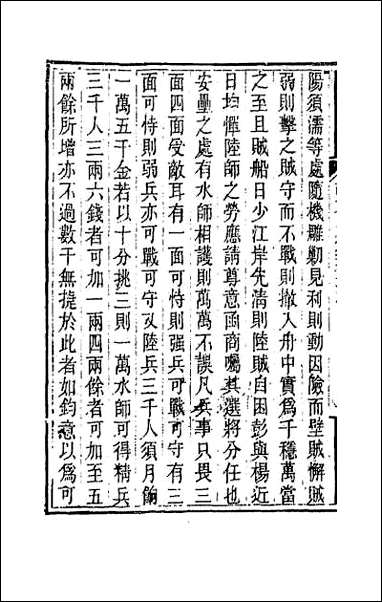 陽須濡等處隨機雕剿見利則動因險而壁賊懈賊
弱則擊之賊守而不戰則撤入舟中實爲千穩萬當
之至且賊船日少江岸先清則陸賊自困彭與楊近
日均憚陸師之勞應請尊意函商囑其選將分任也
安壘之處有水師相護則萬萬不誤凡兵事只畏三
面四面受敵耳有一面可恃則强兵可戰可守有三
面可恃則弱兵亦可戰可守又陸兵三千人須月餉
一萬五千金若以十分挑三則一萬水師可得精兵
三千人三兩六錢者可加一兩四兩餘者可加至五
兩餘所增亦不過數千無捷於此者如鈞意以爲可